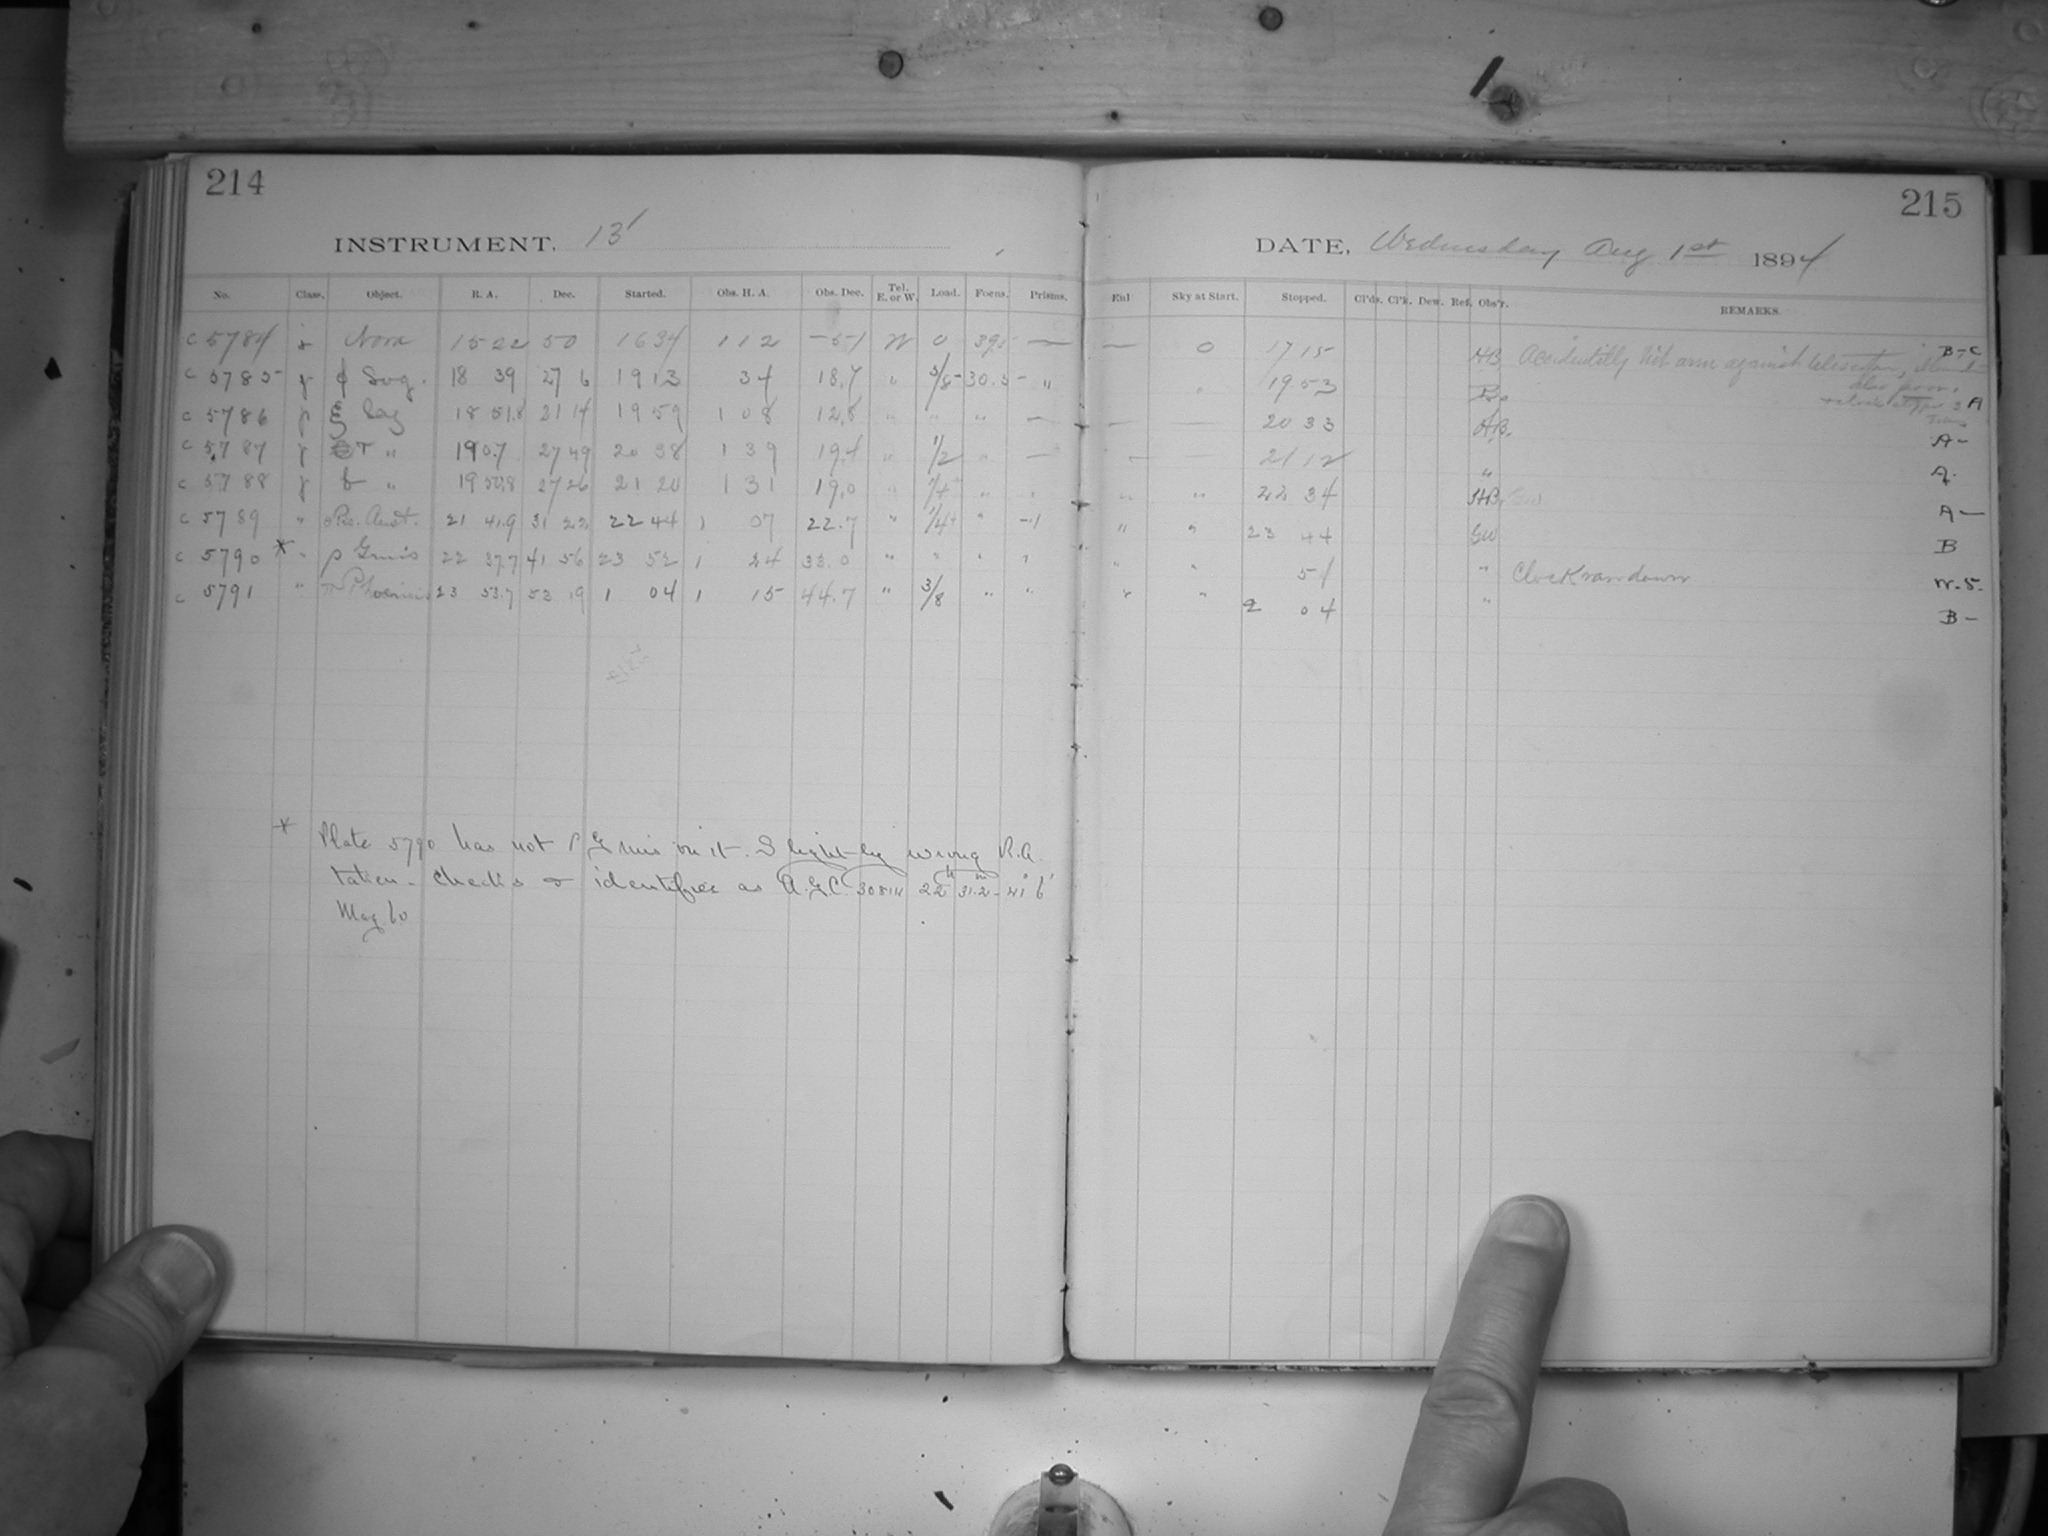 214
INSTRUMENT. 13'
No. Class. Object. R. A. Dec. Started. Obs. H. A. Obs. Dec. Tel. E. or W. Load. Focus. Prisms.
c 5784 Nova 15 22 50 16 34 1 12 -51 W 0 —
c 5785 γ φ Sag. 18 39 27 6 19 13 34 18.7 " 3/8 30.5 "
c 5786 γ ξ Sag 18 51.8 21 14 19 59 1 08 12.8 " " " —
c 5787 γ τ " 19 0.7 27 49 20 38 1 39 19.4 " 1/2 " —
c 5788 γ b " 19 50.8 27 26 21 20 1 31 19.0 " 1/4 " "
c 5789 " Ps. Aust. 21 41.9 31 22 22 44 1 07 22.7 " 1/4 "
c 5790 * " ρ Gruis 22 37.7 41 56 23 52 1 24 33.0 " " " "
c 5791 " π Phoenicis 23 53.7 53 19 1 04 1 15 44.7 " 3/8 " "
* Plate 5790 has not ρ Gruis on it. Slightly wrong R.A.
taken. checks & identifies as A.G.C. 30814 22h 31.2m - 41° 6'
Mag 6.0
215
DATE, Wednesday Aug 1st 1894
Enl Sky at Start. Stopped. Cl'ds. Cl'k. Dew. Ref. Obs'r. REMARKS.
— 0 17 15 HB Accidentally hit arm against telescope, B-C
also poor.
" 19 53 A
— — 20 33 HB. A-
21 12 " A.
" " 22 34 HB. A—
" " 23 44 GW B
" " 51 " Clock ran down W.S.
" " 2 04 " B-